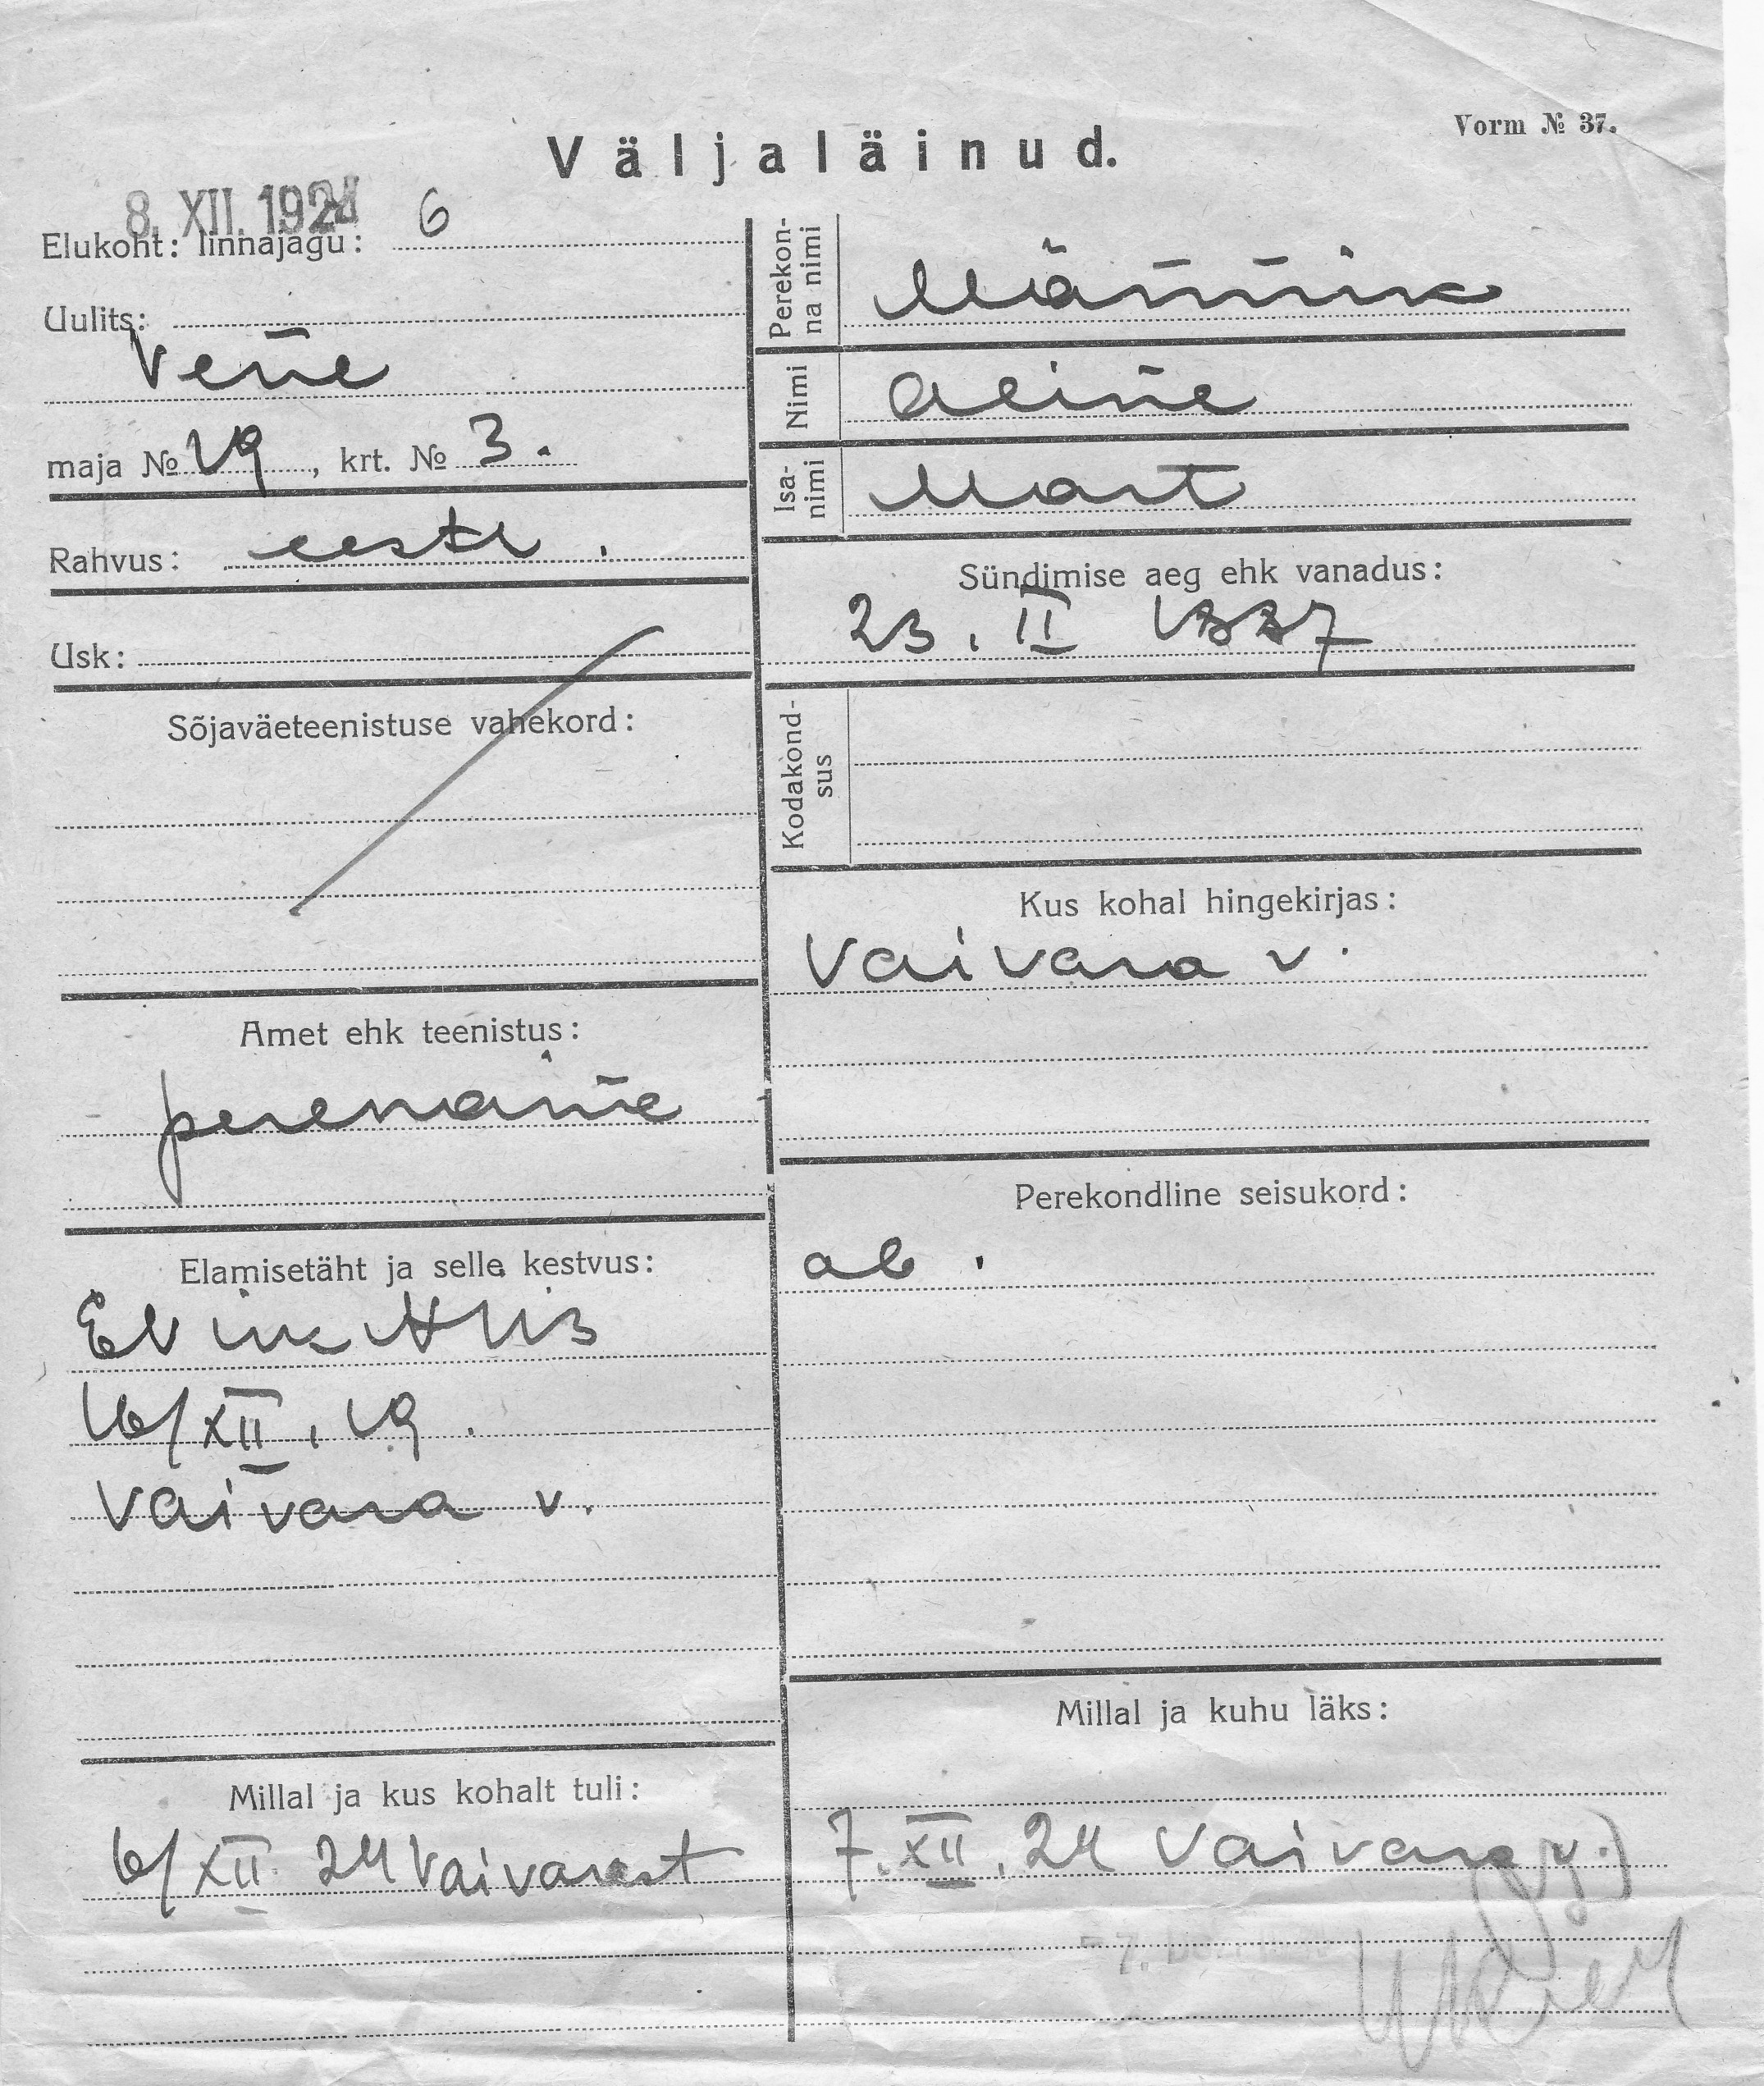 Vorm № 37.
Väljaläinud.
8. XII. 1924
Elukoht: linnajagu: 6
Uulits:
Vene
maja № 19, krt. № 3.
Rahvus: eesti.
Usk:
Sõjaväeteenistuse vahekord:
Amet ehk teenistus:
perenaine
Elamisetäht ja selle kestvus:
16/XII. 19.
Vaivara v.
Millal ja kus kohalt tuli:
6/XII 24 Vaivarast
Perekonna nimi
Männik
Nimi
Aline
Isanimi
Mart
Sündimise aeg ehk vanadus:
23. II 1887
Kodakondsus
Kus kohal hingekirjas:
Vaivara v.
Perekondline seisukord:
ab.
Millal ja kuhu läks:
7. XII. 24 Vaivara v.